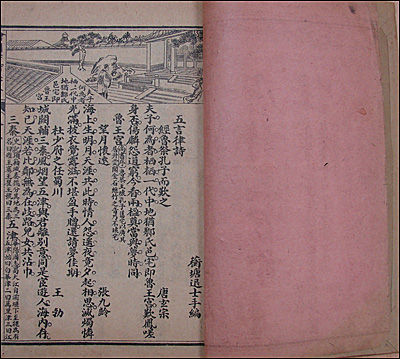 夫子何為者栖
栖一代中
地猶鄹氏
邑宅即
魯王宮
五言律詩
蘅塘退士手編
經魯祭孔子而歎之 唐玄宗
夫子何為者栖栖一代中地猶鄹氏邑宅即魯王宮歎鳳嗟
身否傷麟怨道窮今看兩楹奠當與夢時同
魯王宮
望月懷遠 張九齡
海上生明月天涯共此時情人怨遙夜竟夕起相思滅燭憐
光滿披衣覺露滋不堪盈手贈還請夢佳期
杜少府之任蜀川 王勃
城闕輔三秦風烟望五津與君離別意同是宦遊人海內存
知己天涯若比鄰無為在岐路兒女共沾巾
三秦 五津